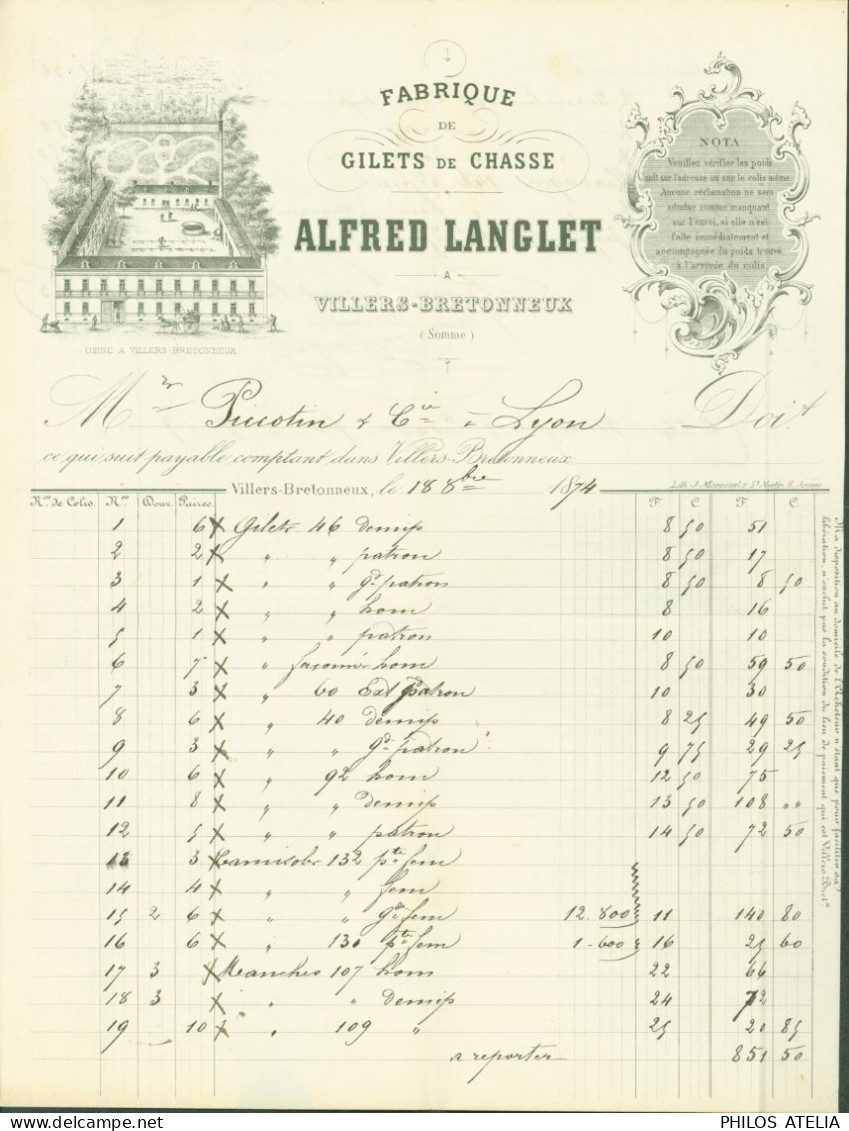 FABRIQUE
DE
GILETS DE CHASSE
ALFRED LANGLET
A
VILLERS-BRETONNEUX
(Somme)
USINE A VILLERS-BRETONNEUX
NOTA
Veuillez vérifier les poids
soit sur l'adresse ou sur le colis même
Aucune réclamation ne sera
admise comme manquant
sur l'envoi, si elle n'est
faite immédiatement et
accompagnée du poids trouvé
à l'arrivée du colis.
Mr Picotin & Cie à Lyon Doit
ce qui suit payable comptant dans Villers-Bretonneux
Villers-Bretonneux, le 18 8bre 1874
Nos de Colis. Nos Douz. Paires. F. C. F. C.
1 6 x Gilets 46 demip 8 50 51
2 2 x " " patron 8 50 17
3 1 x " " gd patron 8 50 8 50
4 2 x " " hom 8 16
5 1 x " " patron 10 10
6 7 x " façonné hom 8 50 59 50
7 3 x " 60 Ext patron 10 30
8 6 x " 40 demip 8 25 49 50
9 3 x " " gd patron 9 75 29 25
10 6 x " 92 hom 12 50 75
11 8 x " " demip 13 50 108 " "
12 5 x " " patron 14 50 72 50
13 3 x Camisoles 132 pte fem
14 4 x " " fem
15 2 6 x " " gde fem 12.800 11 140 80
16 6 x " 130 pte fem 1.600 16 25 60
17 3 x Manches 107 hom 22 66
18 3 x " " demip 24 72
19 10 x " 109 " 25 20 85
a reporter 851 50
Ma disposition au domicile de l'Acheteur n'étant que pour faciliter sa
libération, n'exclut pas la condition du lieu de paiement qui est Villers-Bretx
PHILOS ATELIA